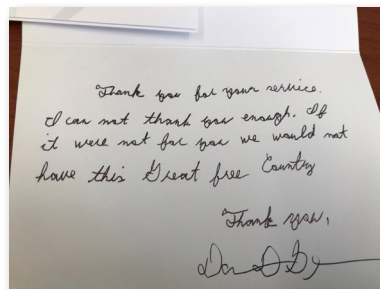 Thank you for your service.
I can not thank you enough. If
it were not for you we would not
have this Great free Country
Thank you,